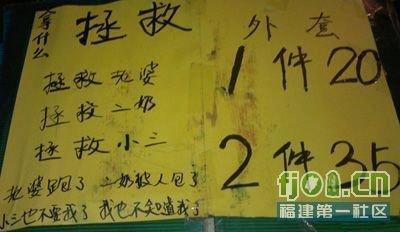 拿什么 拯救
拯救老婆
拯救二奶
拯救小三
老婆跑了 二奶被人包了
小三也不要我了 我也不知道我了
外套
1件20
2件35
fjol.cn
福建第一社区